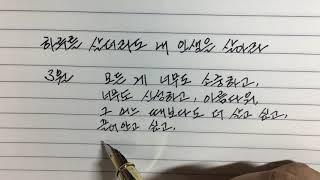 하루를 살더라도 내 인생을 살아라
3월 모든 게 너무도 소중하고,
너무도 신성하고, 아름다워,
그 어느 때보다도 더 살고 싶고,
끌어안고 싶고,